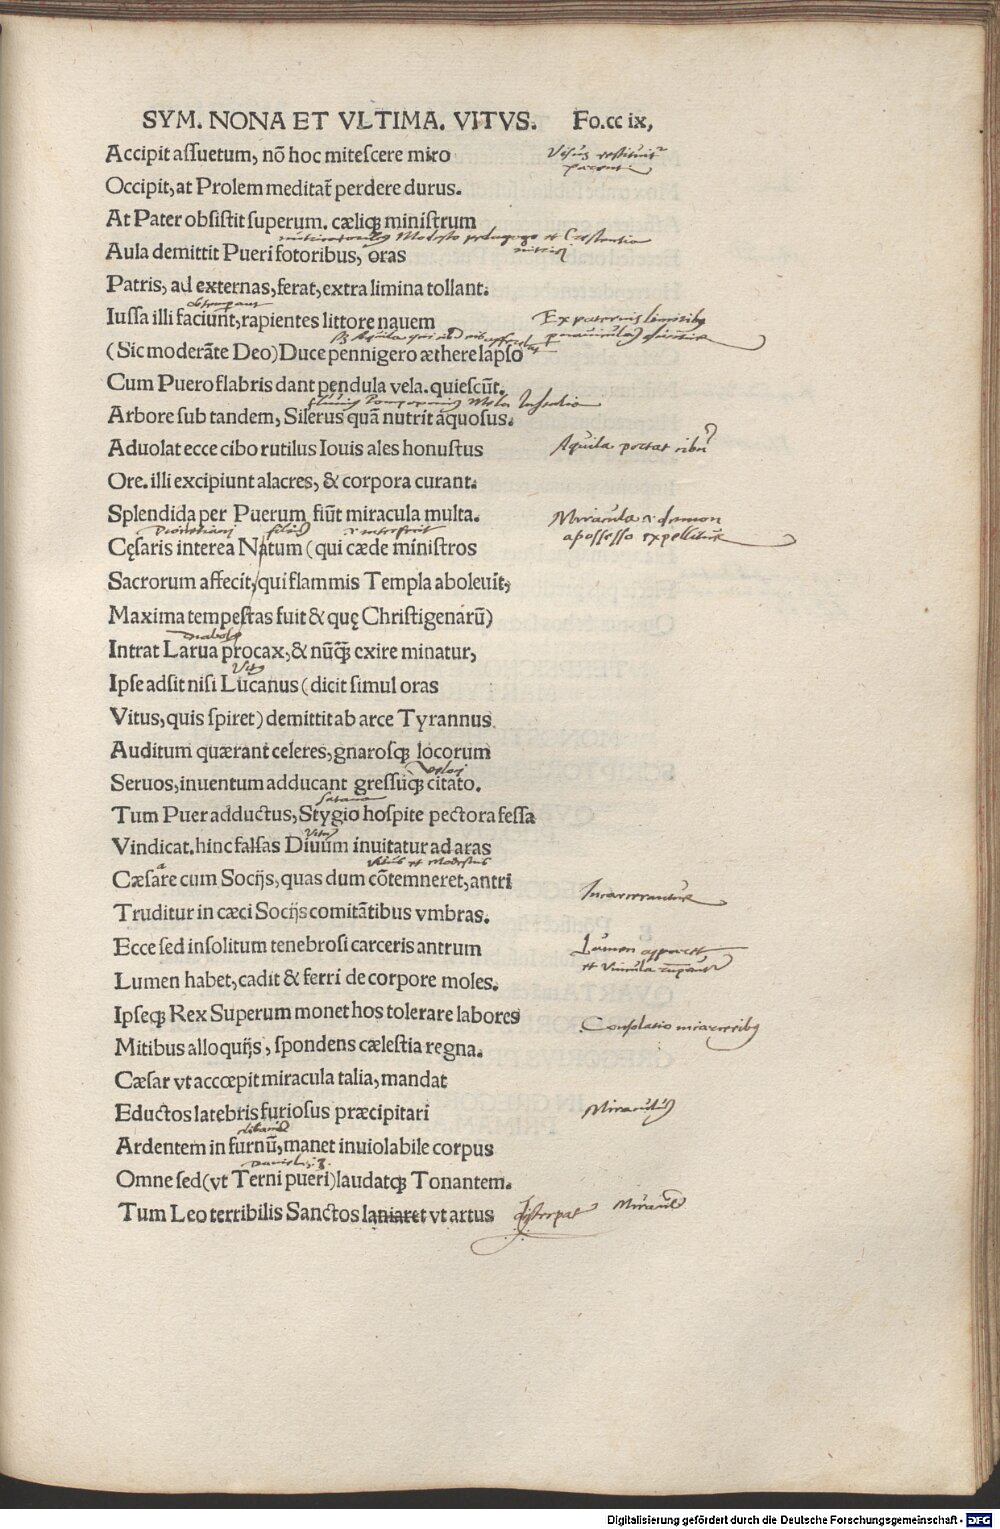 SYM. NONA ET VLTIMA. VITVS. Fo.cc ix,
Accipit assuetum, nō hoc mitescere miro
Visus restituitur
parenti
Occipit, at Prolem meditat̃ perdere durus.
At Pater obsistit superum. cæliqꝫ ministrum
Modesto pedagogo et Crescentia
nutrici
Aula demittit Pueri fotoribus, oras
Patris, ad externas, ferat, extra limina tollant.
obtemperant
Iussa illi faciunt, rapientes littore nauem
Ex paternis
Aquila
(Sic moderāte Deo) Duce pennigero æthere lapso
Cum Puero flabris dant pendula vela. quiescūt.
fluuius Pomponius Mela
Arbore sub tandem, Silerus quā nutrit aquosus.
Aduolat ecce cibo rutilus Iouis ales honustus
Aquila portat cibū
Ore. illi excipiunt alacres, & corpora curant.
Splendida per Puerum fiūt miracula multa.
Miracula & demon
a possesso expellitur
Diocletiani filius & interfecit
Cęsaris interea Natum (qui cæde ministros
Sacrorum affecit, qui flammis Templa aboleuit,
Maxima tempestas fuit & quę Christigenarū)
diabolus
Intrat Larua procax, & nūqꝫ̃ exire minatur,
Vitus
Ipse adsit nisi Lucanus (dicit simul oras
Vitus, quis spiret) demittit ab arce Tyrannus
Auditum quærant celeres, gnarosqꝫ locorum
Seruos, inuentum adducant gressuqꝫ citato.
veloci
satana
Tum Puer adductus, Stygio hospite pectora fessa
Vitus
Vindicat. hinc falsas Diuum inuitatur ad aras
a Vitus et Modestus
Cæsare cum Socijs, quas dum cōtemneret, antri
Incarcerantur
Truditur in cæci Socijs comitātibus vmbras.
Ecce sed insolitum tenebrosi carceris antrum
Lumen apparet
et vincula rumpuntur
Lumen habet, cadit & ferri de corpore moles.
Ipseqꝫ Rex Superum monet hos tolerare labores
Consolatio in carceribus
Mitibus alloquijs, spondens cælestia regna.
Cæsar vt accœpit miracula talia, mandat
Eductos latebris furiosus præcipitari
Miraculum
clibanum
Ardentem in furnū, manet inuiolabile corpus
Danielis 3.
Omne sed (vt Terni pueri) laudatqꝫ Tonantem.
Tum Leo terribilis Sanctos laniaret vt artus
Miraculum
Digitalisierung gefördert durch die Deutsche Forschungsgemeinschaft - DFG